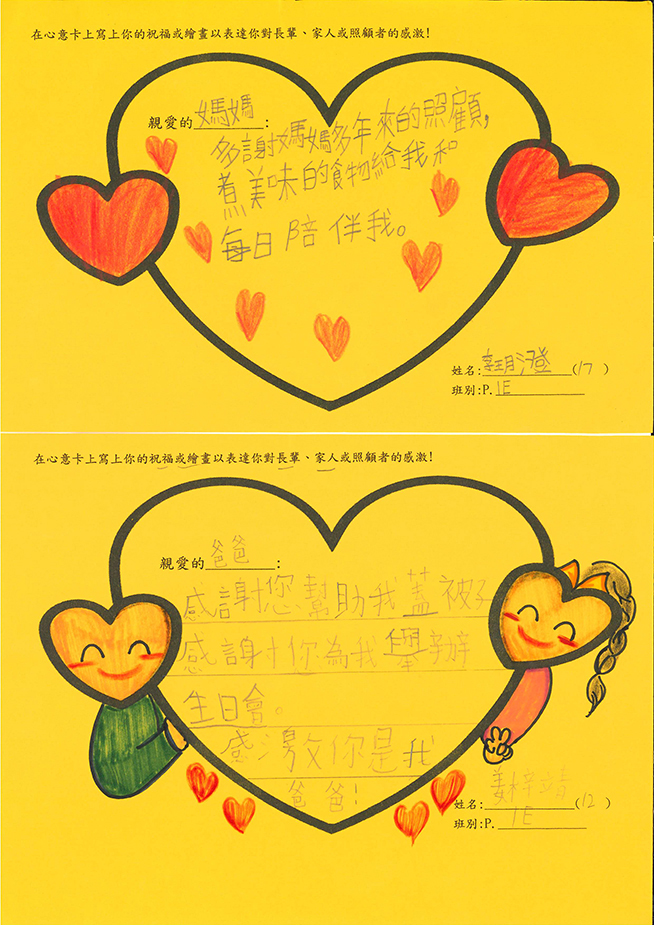 在心意卡上寫上你的祝福或繪畫以表達你對長輩、家人或照顧者的感激!
親愛的媽媽:
多謝媽媽多年來的照顧,
煮美味的食物給我和
每日陪伴我。
姓名:李玥澄(17)
班別:P.1E
在心意卡上寫上你的祝福或繪畫以表達你對長輩、家人或照顧者的感激!
親愛的爸爸:
感謝您幫助我蓋被子
感謝你為我舉辦
生日會。
感激你是我
爸爸!
姓名:姜梓靖(12)
班別:P.1E